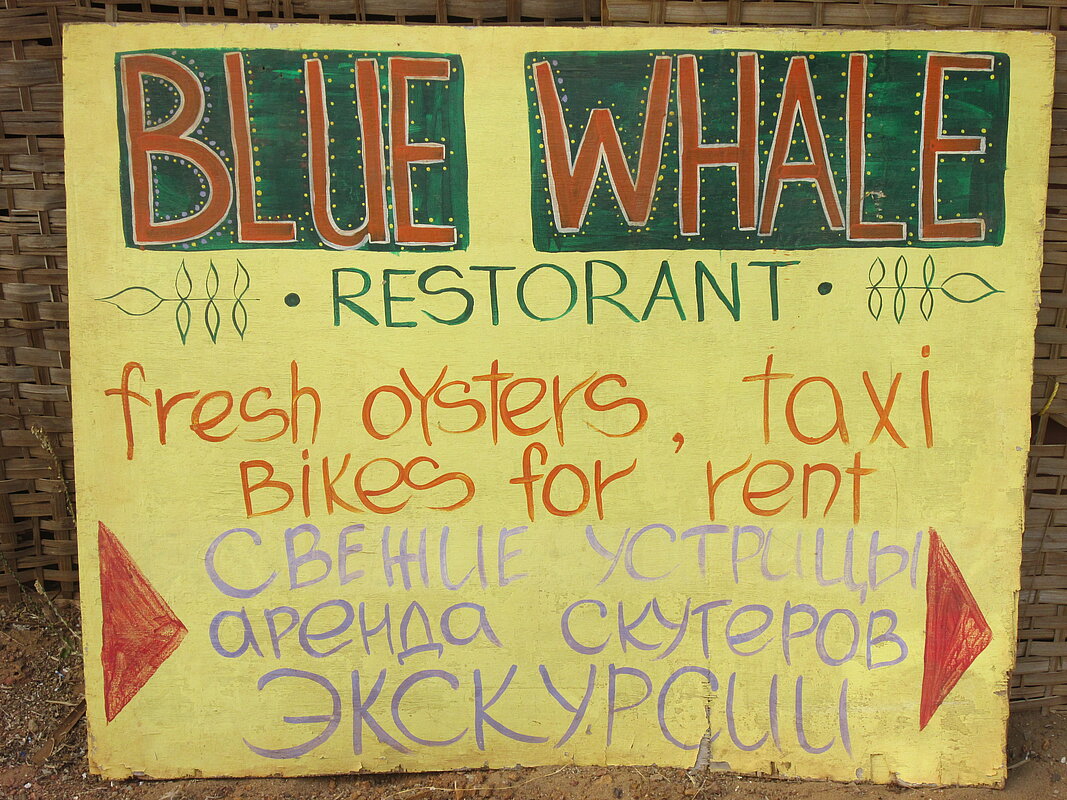 BLUE WHALE
• RESTORANT •
fresh oysters, taxi
Bikes for rent
СВЕЖИЕ УСТРИЦЫ
аренда скутеров
ЭКСКУРСИИ